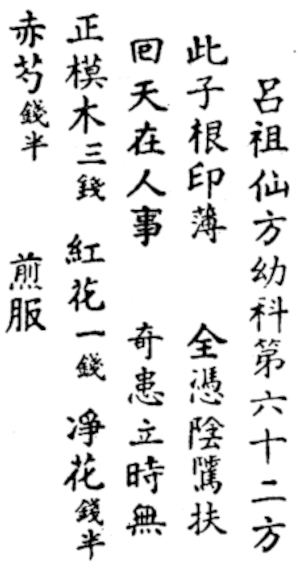 呂祖仙方幼科第六十二方
此子根印薄 全憑陰騭扶
回天在人事 奇患立時無
正模木三錢 紅花一錢 淨花錢半
赤芍錢半 煎服